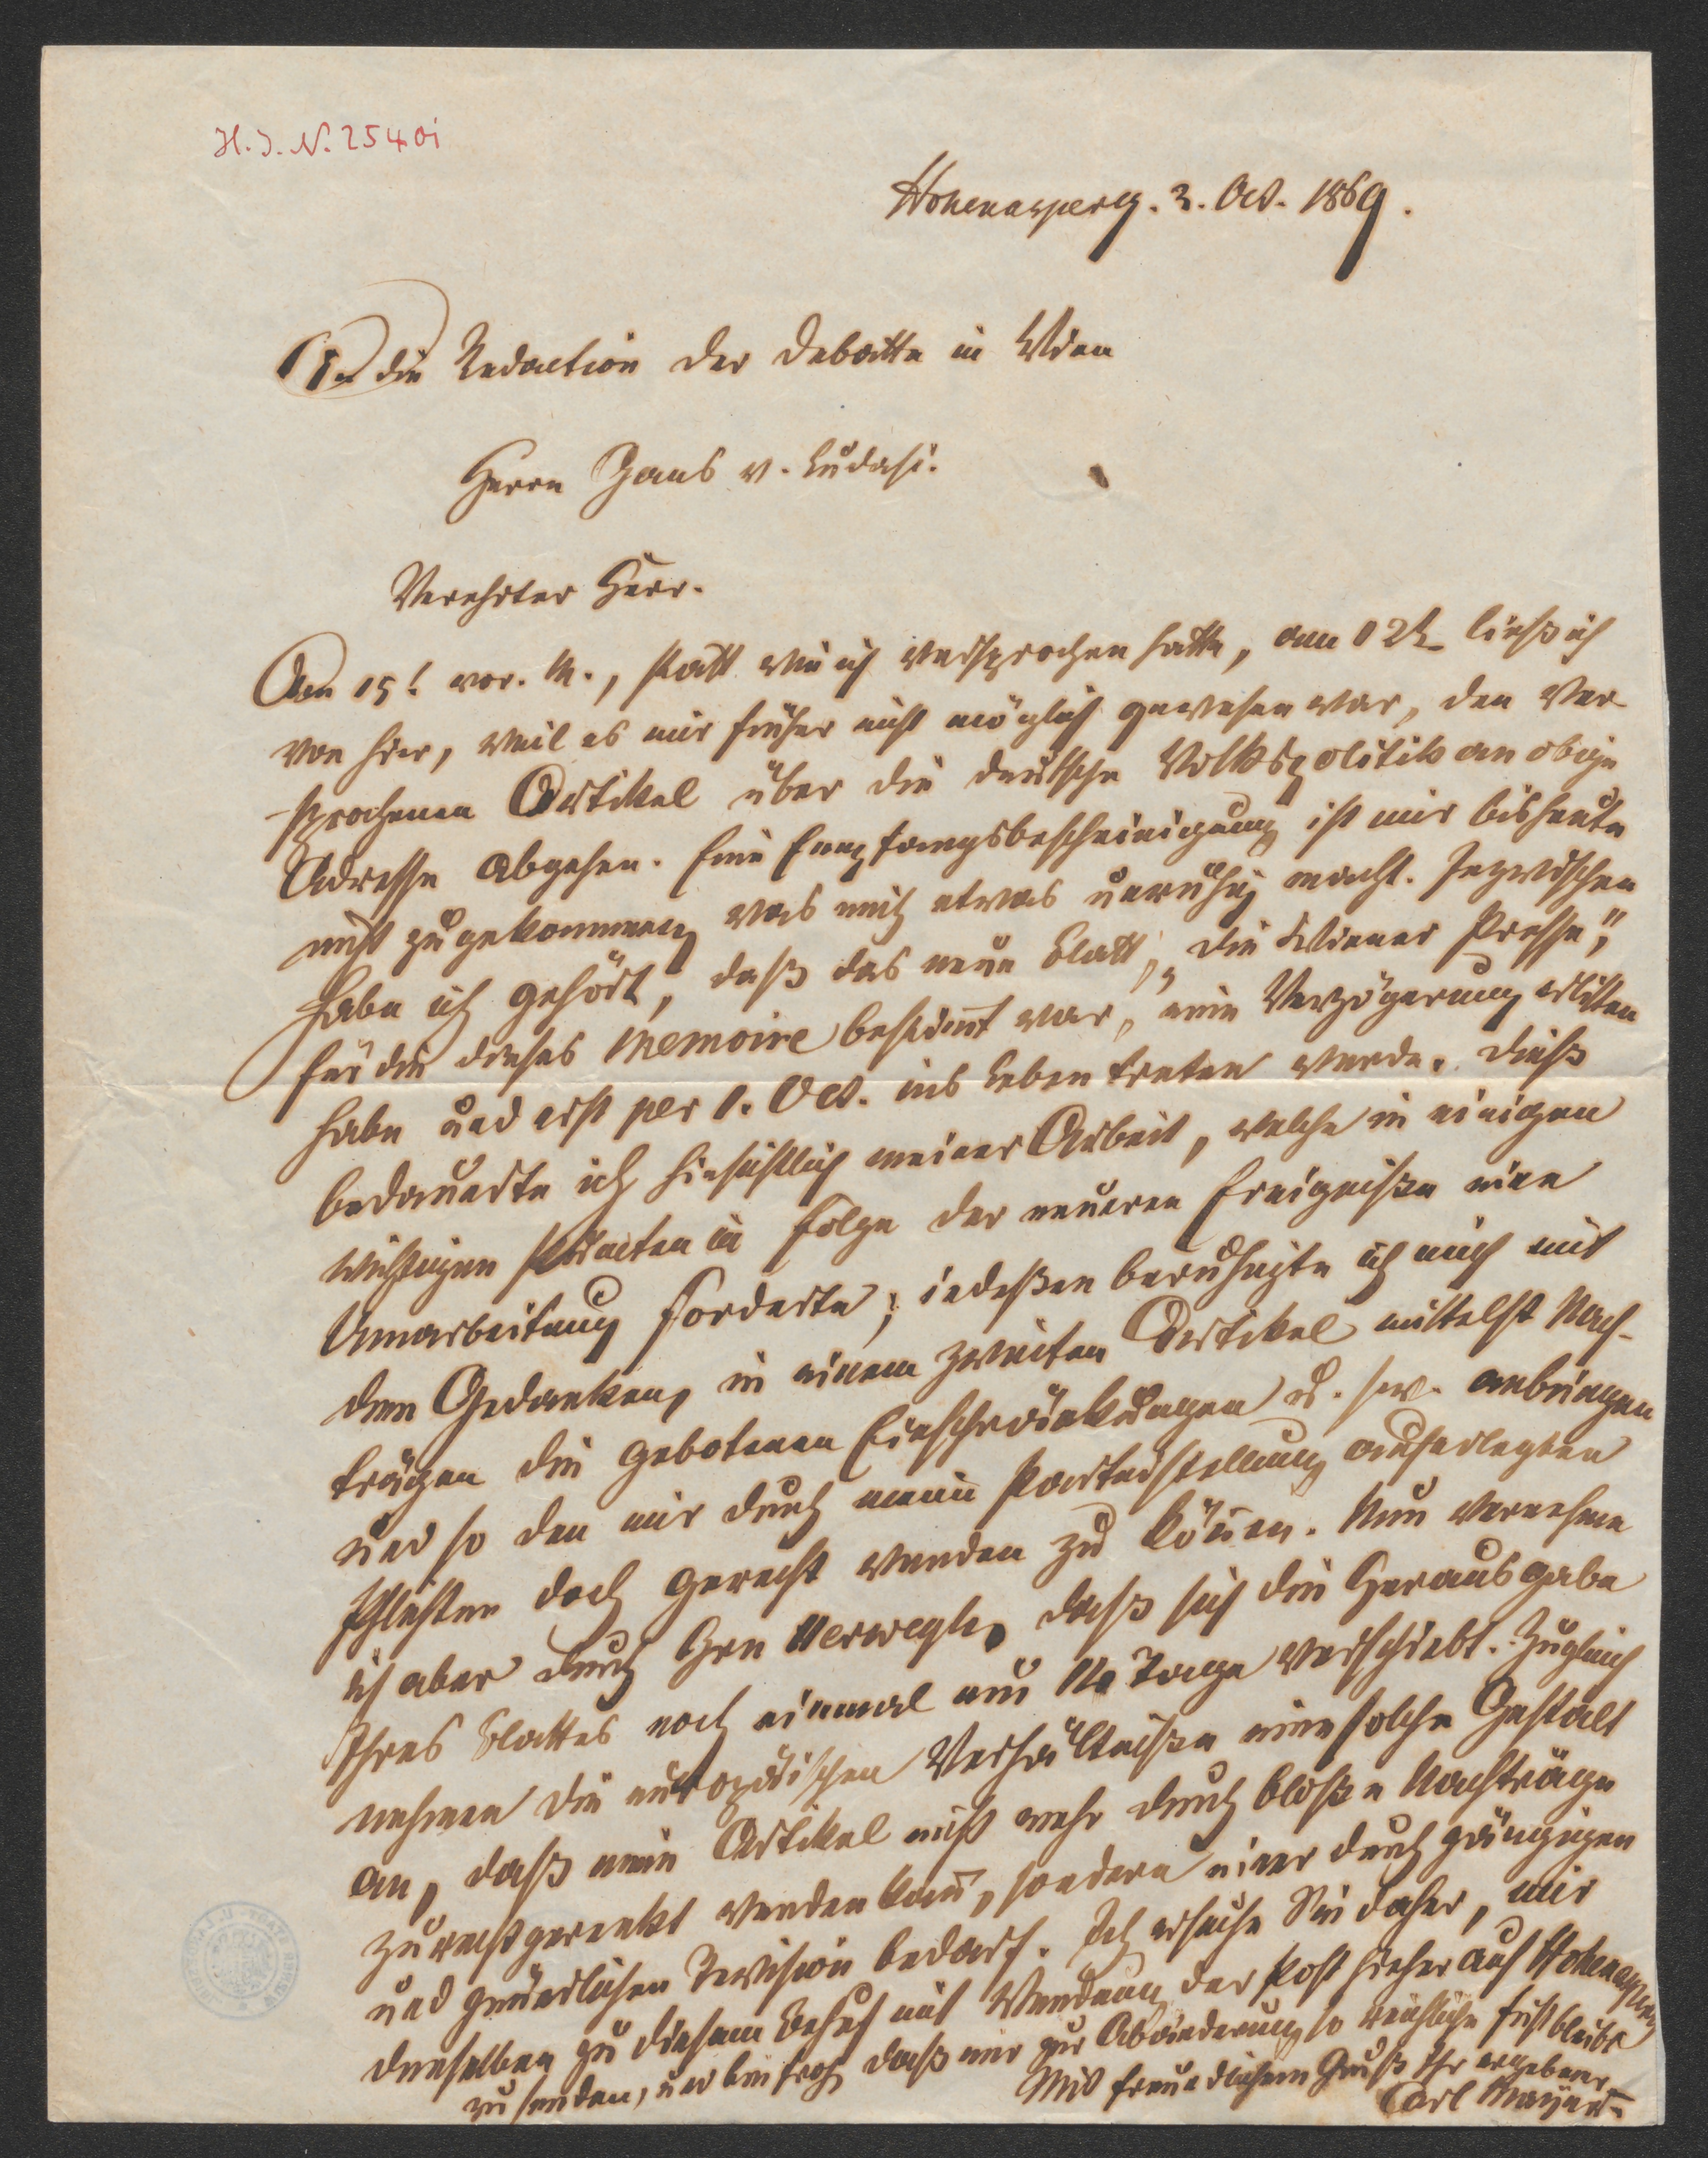 H. I. N. 25401
Hohenasperg. 3. Oct. 1869.
An die Redaction der Debatte in Wien
Herrn Gans v. Ludasi.
Verehrter Herr.
Am 15t. vor. M., statt wie ich versprochen hatte, am 12t ließ ich
von hier, weil es mir früher nicht möglich gewesen war, den ver-
sprochenen Artikel über die deutsche Volkspolitik an obige
Adresse abgehen. Eine Empfangsbescheinigung ist mir bis heute
nicht zugekommen, was mich etwas unruhig macht. Inzwischen
habe ich gehört, daß das neue Blatt, „die Wiener Presse",
für die dieses Memoire bestimmt war, eine Verzögerung erlitten
habe und erst per 1. Oct. ins Leben treten werde. Dieß
bedauerte ich hinsichtlich meiner Arbeit, welche in einigen
wichtigen Punkten in Folge der neueren Ereigniße eine
Umarbeitung forderte; indeßen beruhigte ich mich mit
dem Gedanken, in einem zweiten Artikel mittelst Nach-
trägen die gebotenen Einschränkungen u. s. w. anbringen
und so den mir durch meine Parteistellung auferlegten
Pflichten doch gerecht werden zu können. Nun vernehme
ich aber durch Hrn Herwegh, daß sich die Herausgabe
Ihres Blattes noch einmal um 14 Tage verschiebt. Zugleich
nehmen die europäischen Verhältniße eine solche Gestalt
an, daß mein Artikel nicht mehr durch bloße Nachträge
zurechtgerenkt werden kann, sondern einer durchgängigen
und gründlichen Revision bedarf. Ich ersuche Sie daher, mir
denselben zu diesem Behuf mit Wendung der Post hieher auf Hohenasperg
zu senden, und bin froh, daß mir zur Abänderung so reichliche Frist bleibt
Mit freundlichem Gruß Ihr ergebener
Carl Mayer.